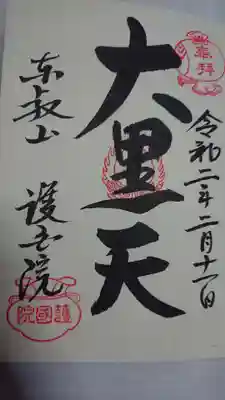 奉拝
令和二年二月十一日
大黒天
東叡山 護国院
護國院